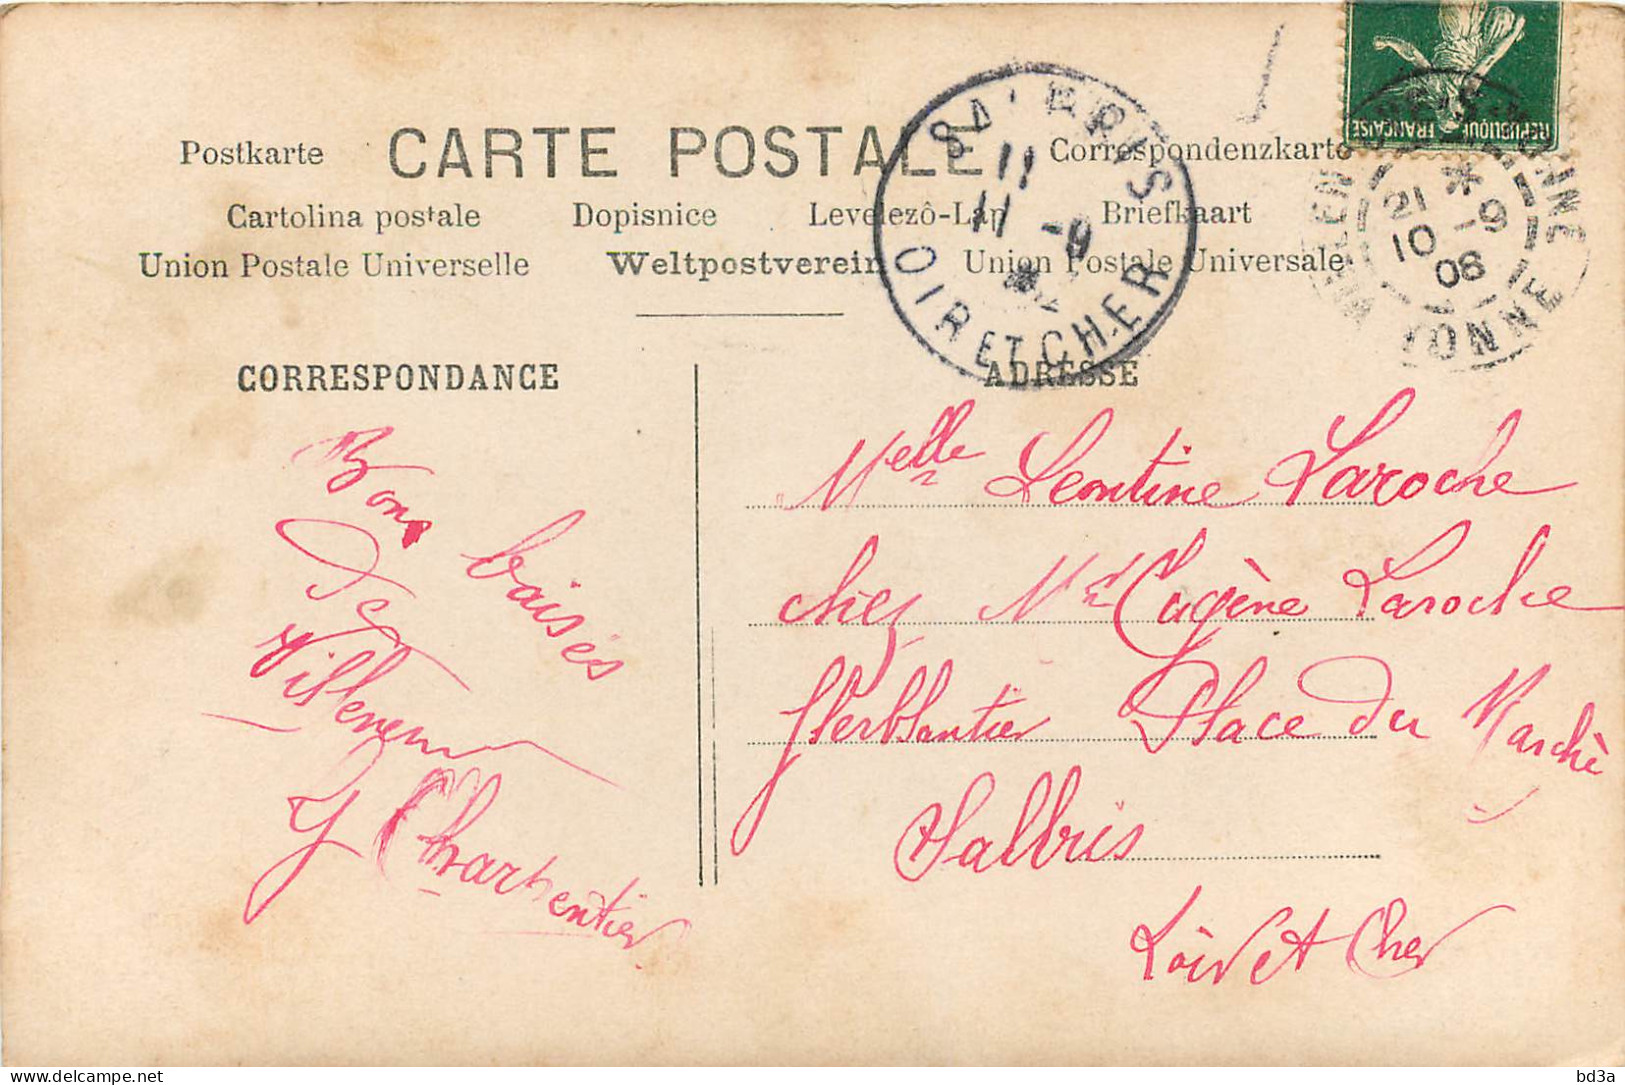 Postkarte CARTE POSTALE Correspondenzkarte
Cartolina postale Dopisnice Levelezô-Lap Briefkaart
Union Postale Universelle Weltpostverein Union Postale Universale
CORRESPONDANCE
ADRESSE
SALBRIS
11
11 -9
LOIR ET CHER
REPUBLIQUE FRANÇAISE
21 *
10 -9
06
YONNE
Bons baisés
de
Villeneuve
Y Charpentier
Melle Leontine Laroche
chez Mr Eugène Laroche
ferblantier Place du Marché
Salbris
Loir et Cher
delcampe.net
bd3a